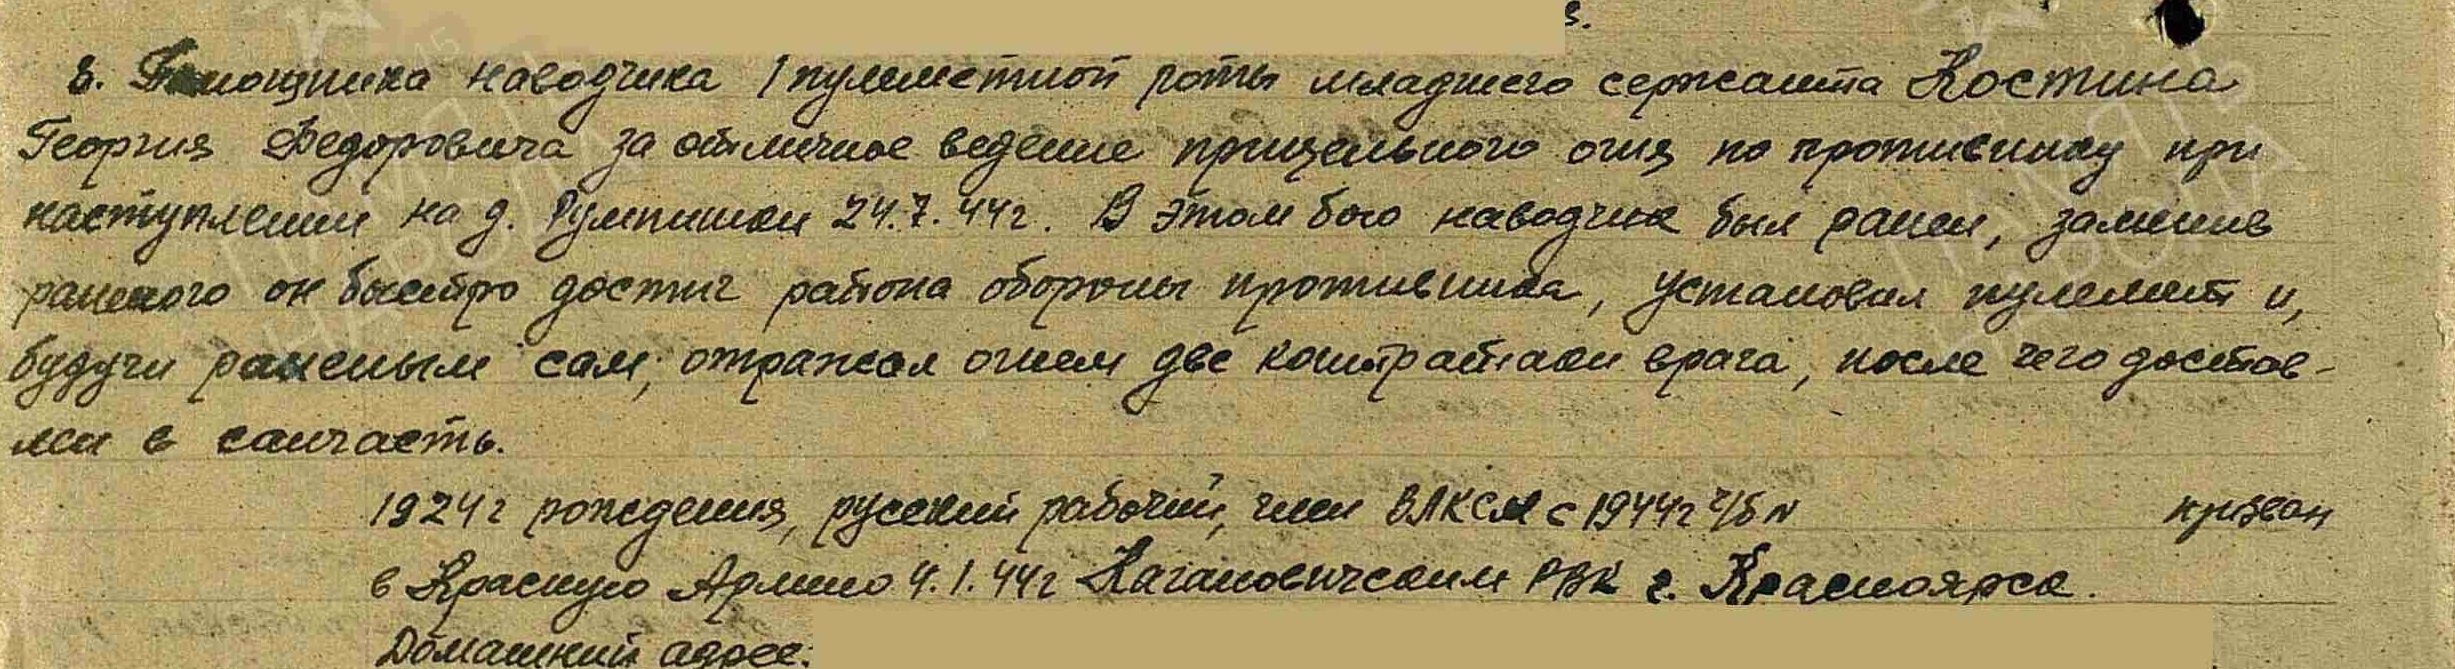 в.
8. Помощника наводчика 1 пулеметной роты младшего сержанта Костина
Георгия Федоровича за отличное ведение прицельного огня по противнику при
наступлении на д. Румпишки 24.7.44г. В этом бою наводчик был ранен, заменив
раненого он быстро достиг района обороны противника, установил пулемет и,
будучи раненым сам, отражал огнем две контратаки врага, после чего достав-
лен в санчасть.
1924г рождения, русский рабочий, член ВЛКСМ с 1944г ч/б N призван
в Красную Армию 4.1.44г Кагановичским РВК г. Красноярск.
Домашний адрес: